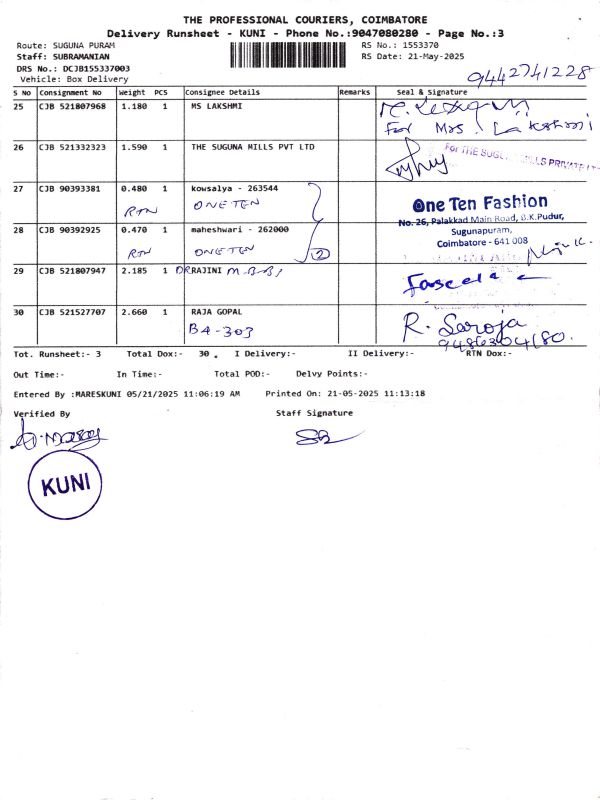 THE PROFESSIONAL COURIERS, COIMBATORE
Delivery Runsheet - KUNI - Phone No.:9047080280 - Page No.:3
Route: SUGUNA PURAM RS No.: 1553370
Staff: SUBRAMANIAN RS Date: 21-May-2025
DRS No.: DCJB155337003
Vehicle: Box Delivery 9442741228
S No Consignment No Weight PCS Consignee Details Remarks Seal & Signature
25 CJB 521807968 1.180 1 MS LAKSHMI
For Mrs. Lakshmi
26 CJB 521332323 1.590 1 THE SUGUNA MILLS PVT LTD
For THE SUGUNA MILLS PRIVATE
27 CJB 90393381 0.480 1 kowsalya - 263544
RTN ONE TEN
One Ten Fashion
No. 26, Palakkad Main Road, B.K.Pudur,
28 CJB 90392925 0.470 1 maheshwari - 262000
Sugunapuram,
Coimbatore - 641 008
RTN ONE TEN 2
29 CJB 521807947 2.185 1 DR RAJINI M.B.B.S
Faseela
30 CJB 521527707 2.660 1 RAJA GOPAL
B4-303 R. Saroja
Tot. Runsheet:- 3 Total Dox:- 30. I Delivery:- II Delivery:- RTN Dox:-
Out Time:- In Time:- Total POD:- Delvy Points:-
Entered By :MARESKUNI 05/21/2025 11:06:19 AM Printed On: 21-05-2025 11:13:18
Verified By Staff Signature
KUNI